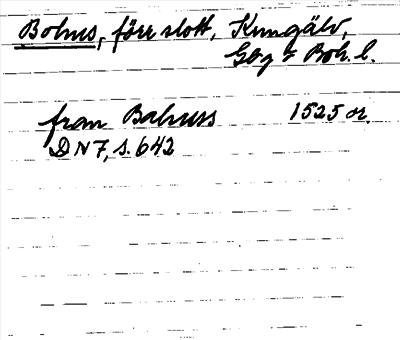 Bohus, förr slott, Kungälv,
Gbg o Boh. l.
from Bahuss 1525 or.
DN 7, s. 642